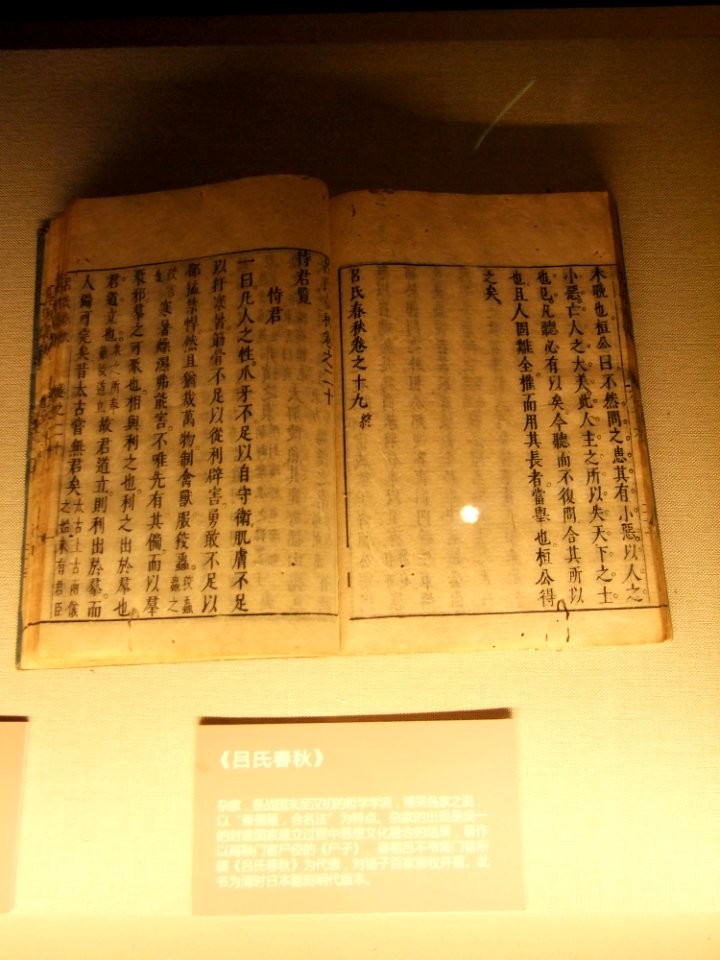 未晚也桓公曰不然問之患其有小惡以人之
小惡亡人之大美此人主之所以失天下之士
也已凡聽必有以矣今聽而不復問合其所以
也且人固難全權而用其長者當舉也桓公得
之矣
呂氏春秋卷之十九終
恃君覽
恃君
一曰凡人之性爪牙不足以自守衛肌膚不足
以扞寒暑筋骨不足以從利辟害勇敢不足以
卻猛禁悍然且猶裁萬物制禽獸服狡蟲
寒暑燥濕弗能害不唯先有其備而以羣
聚邪羣之可聚也相與利之也利之出於羣也
君道立也故君道立則利出於羣而
人備可完矣昔太古嘗無君矣
《吕氏春秋》
杂家，是战国末至汉初的哲学学派，博采各家之说，
以“兼儒墨，合名法”为特点。杂家的出现是统一
的封建国家建立过程中思想文化融合的结果，著作
以商鞅门客尸佼的《尸子》，秦相吕不韦集门客所
编《吕氏春秋》为代表，对诸子百家兼收并蓄。此
书为清时日本翻刻明代版本。